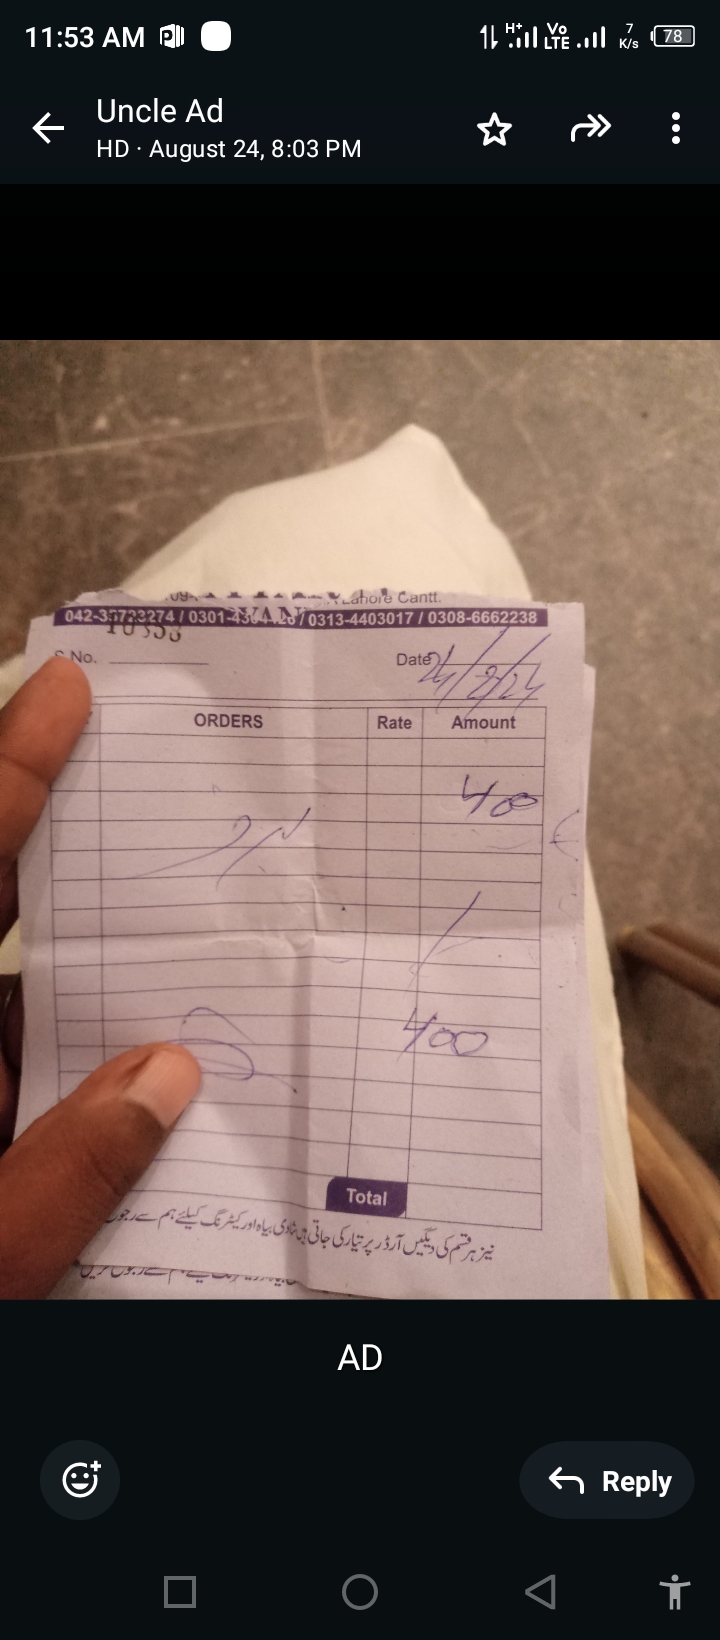 11:53 AM
H+ Vo LTE 7 K/s 78
Uncle Ad
HD · August 24, 8:03 PM
Lahore Cantt.
042-35723274 / 0301- / 0313-4403017 / 0308-6662238
S.No.
Date 24/8/24
ORDERS Rate Amount
400
400
Total
نیز ہر قسم کی دیگیں آرڈر پر تیار کی جاتی ہیں شادی بیاہ اور کیٹرنگ کیلئے ہم سے رجوع
AD
Reply